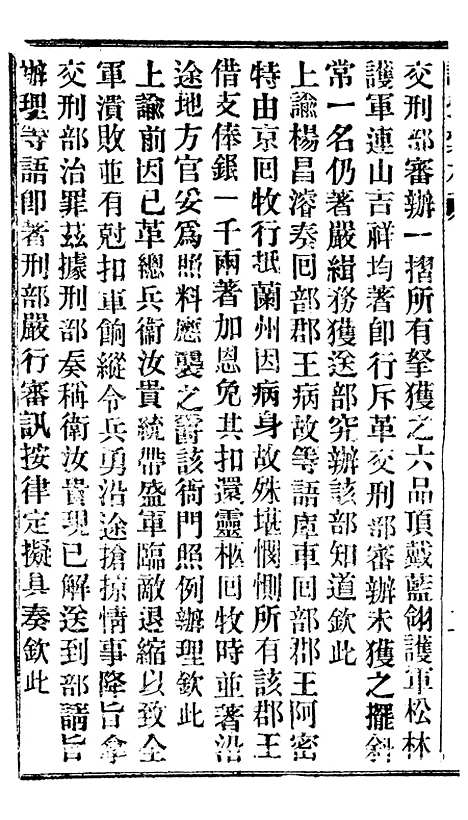 交刑部審辦一摺所有拏獲之六品頂戴藍翎護軍松林
護軍連山吉祥均著卽行斥革交刑部審辦未獲之擺斜
常一名仍著嚴緝務獲送部究辦該部知道欽此
上諭楊昌濬奏回部郡王病故等語庫車回部郡王阿密
特由京回牧行抵蘭州因病身故殊堪憫惻所有該郡王
借支俸銀一千兩著加恩免其扣還靈柩回牧時並著沿
途地方官妥爲照料應襲之爵該衙門照例辦理欽此
上諭前因已革總兵衞汝貴統帶盛軍臨敵退縮以致全
軍潰敗並有尅扣軍餉縱令兵勇沿途搶掠情事降旨拿
交刑部治罪茲據刑部奏稱衛汝貴現已解送到部請旨
辦理等語卽著刑部嚴行審訊按律定擬具奏欽此